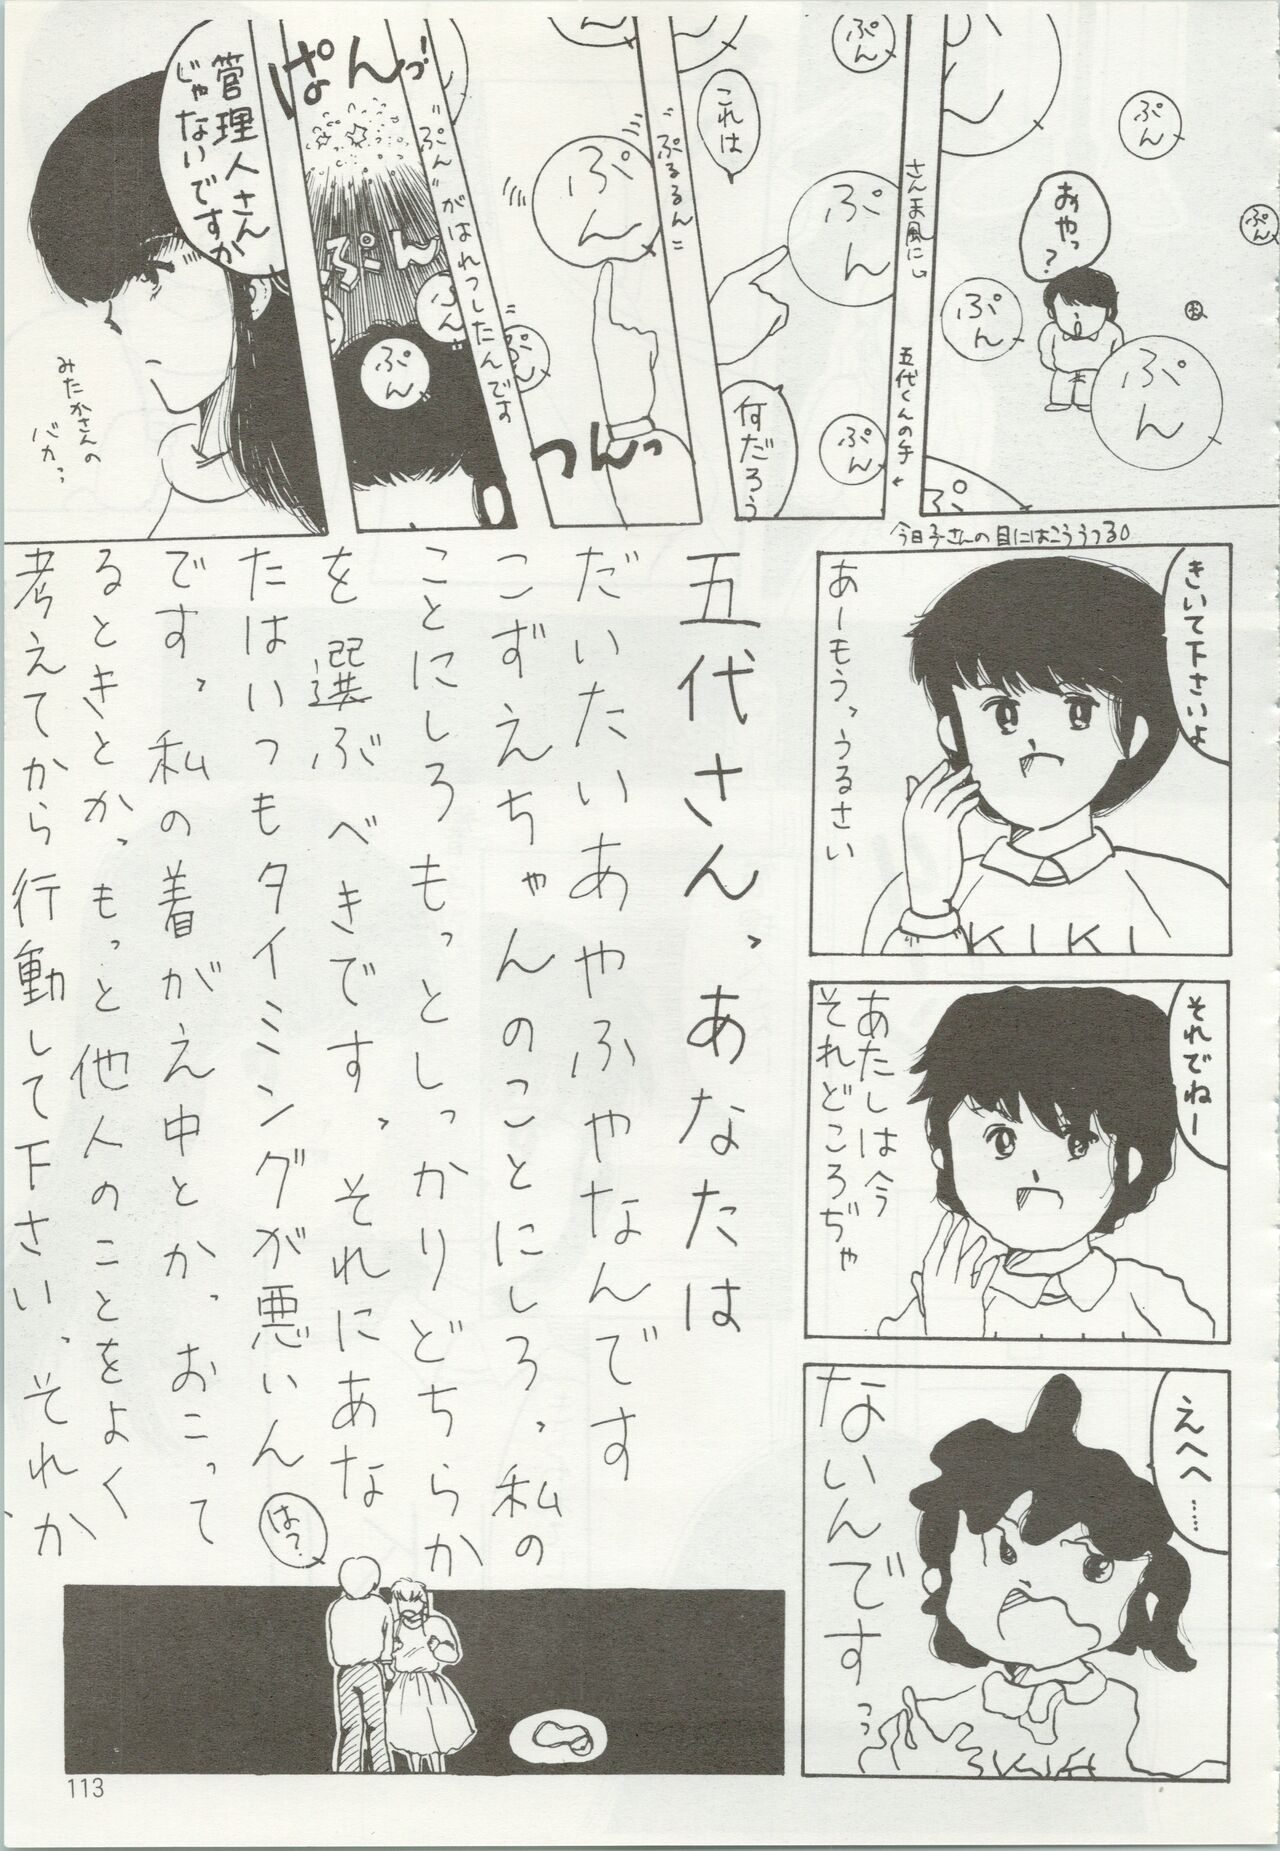 ぷん
ぷん
ぷん
ぷん
お
ぷん
おやっ?
ぷ
さんま風に
五代くんの手
ぷん
ぷん
ぷん
これは
何だろう
〝ぷるるん〟
ぷん
つんっ
ぷん
〝ぷん〟がはれつしたんです
ぱんっ!
ぷん
ぷん
ぷん
管理人さん
じゃないですか
みたかさんの
バカっ
今日子さんの目にはこううつる
きいて下さいよ
あーもうっうるさい
KIKI
それでねー
あたしは今
それどころぢゃ
えへへ……
ないんですっ
五代さん、あなたは
だいたいあやふやなんです
こずえちゃんのことにしろ、私の
ことにしろもっとしっかりどちらか
を選ぶべきです。それにあな
たはいつもタイミングが悪いん
です、私の着がえ中とか、おこって
るときとか、もっと他人のことをよく
考えてから行動して下さい、それか
は?
113